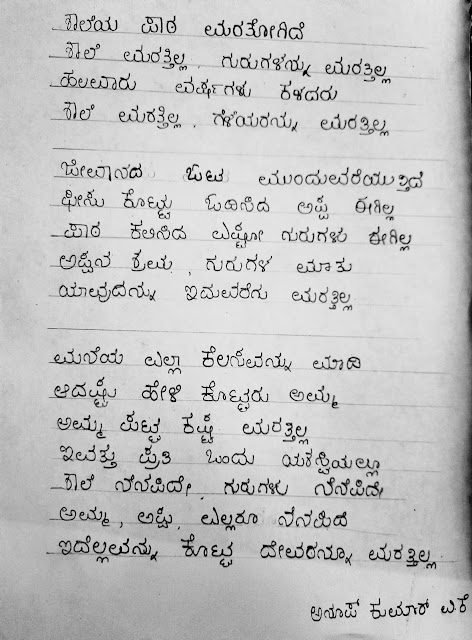 ಶಾಲೆಯ ಪಾಠ ಮರತೋಗಿದೆ
ಶಾಲೆ ಮರತ್ತಿಲ್ಲ, ಗುರುಗಳನ್ನು ಮರತ್ತಿಲ್ಲ
ಹಲವಾರು ವರ್ಷಗಳು ಕಳದರು
ಶಾಲೆ ಮರತ್ತಿಲ್ಲ, ಗೆಳೆಯರನ್ನು ಮರತ್ತಿಲ್ಲ
ಜೀವಾನದ ಓಟ ಮುಂದುವರೆಯುತ್ತಿದೆ
ಫೀಸು ಕೊಟ್ಟು ಓದಿಸಿದ ಅಪ್ಪ ಈಗಿಲ್ಲ
ಪಾಠ ಕಲಿಸಿದ ಎಷ್ಟೋ ಗುರುಗಳು ಈಗಿಲ್ಲ
ಅಪ್ಪನ ಶ್ರಮ, ಗುರುಗಳ ಮಾತು
ಯಾವುದನ್ನು ಇದುವರೆಗು ಮರತ್ತಿಲ್ಲ
ಮನೆಯ ಎಲ್ಲಾ ಕೆಲಸವನ್ನು ಮಾಡಿ
ಆದಷ್ಟು ಹೇಳಿ ಕೊಟ್ಟರು ಅಮ್ಮ
ಅಮ್ಮ ಪಟ್ಟ ಕಷ್ಟ ಮರತ್ತಿಲ್ಲ
ಇವತ್ತು ಪ್ರತಿ ಒಂದು ಯಶಸ್ಸಿಯಲ್ಲೂ
ಶಾಲೆ ನೆನಪಿದೇ, ಗುರುಗಳು ನೆನೆಪಿದೇ
ಅಮ್ಮ, ಅಪ್ಪ, ಎಲ್ಲರೂ ನೆನಪಿದೆ
ಇದೆಲ್ಲವನ್ನು ಕೊಟ್ಟ ದೇವರನ್ನೂ ಮರತ್ತಿಲ್ಲ
ಅನೂಪ್ ಕುಮಾರ್ ವಿ ಕೆ